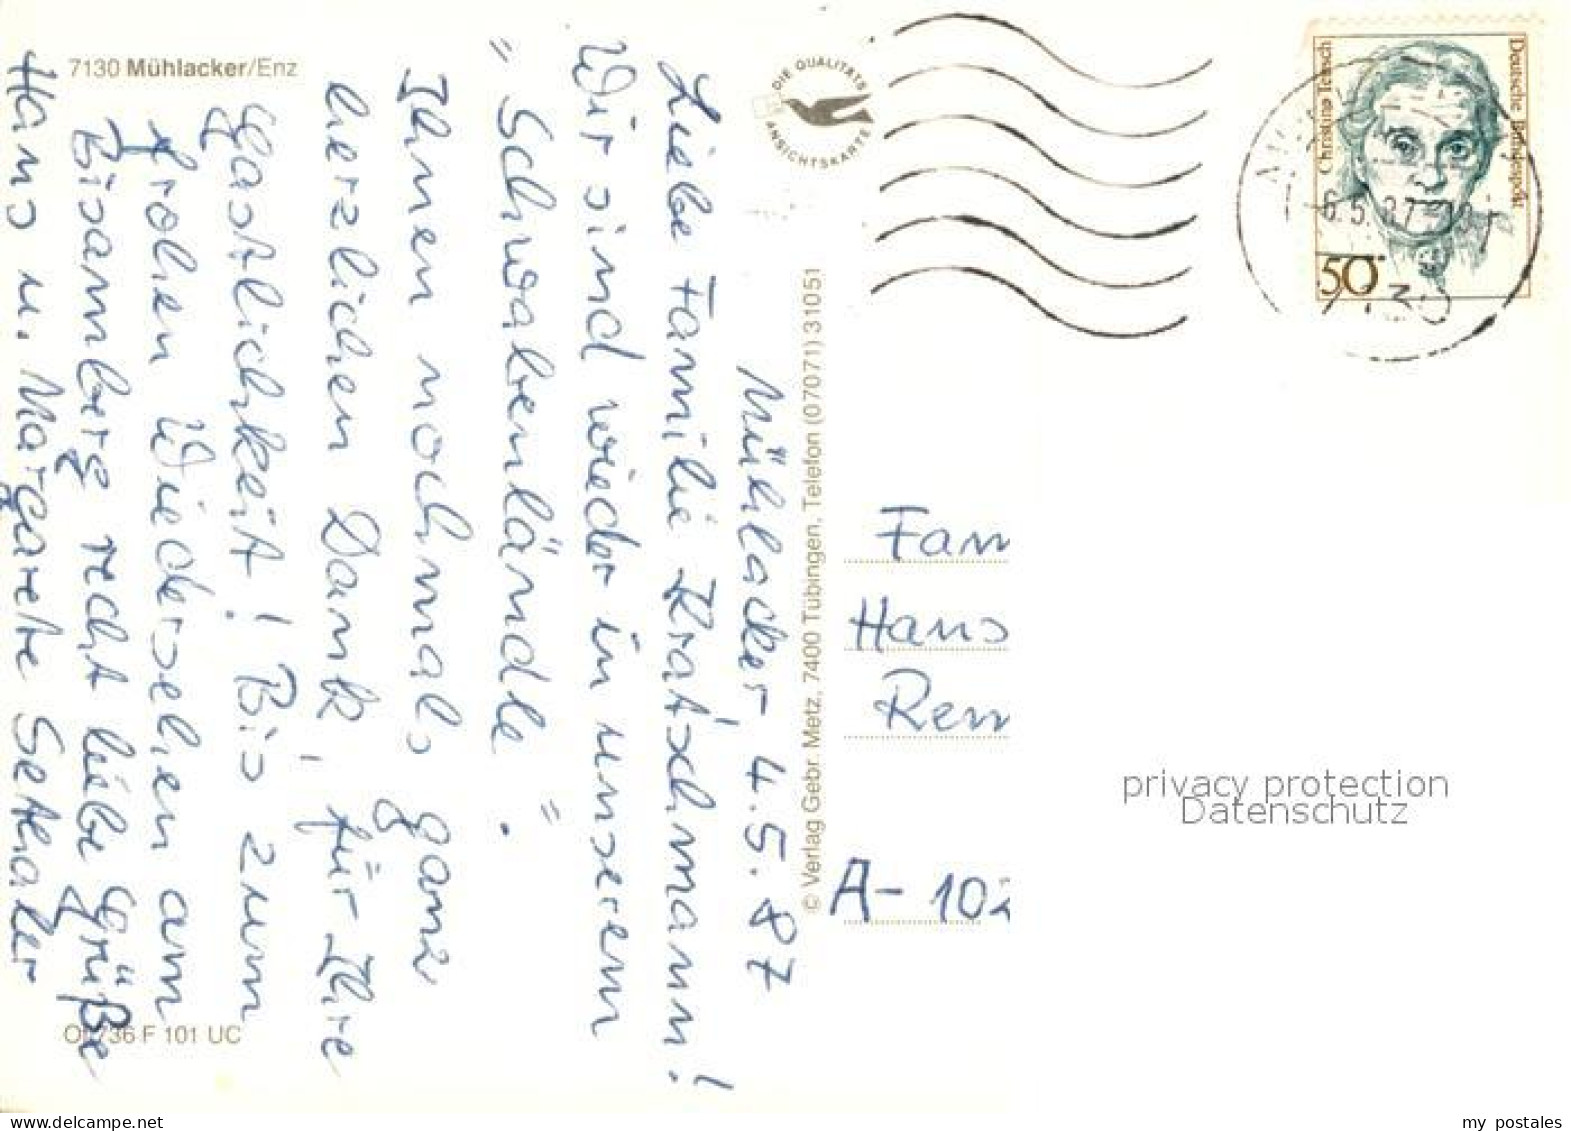 7130 Mühlacker/Enz
Mühlacker, 4.5.87
Liebe Familie Kratschmann!
Wir sind wieder in unserem
"Schwabenländle".
Ihnen nochmals ganz
herzlichen Dank, für Ihre
Gastlichkeit! Bis zum
frohen Wiedersehen am
Bisamberg recht liebe Grüße
Hans u. Margarete Sethaler
736 F 101 UC
DIE QUALITÄTS
ANSICHTSKARTE
© Verlag Gebr. Metz, 7400 Tübingen, Telefon (07071) 31051
Christine Teusch
Deutsche Bundespost
50
6.5.87
Fam
Hans
Ren
A-102
privacy protection
Datenschutz
my postales